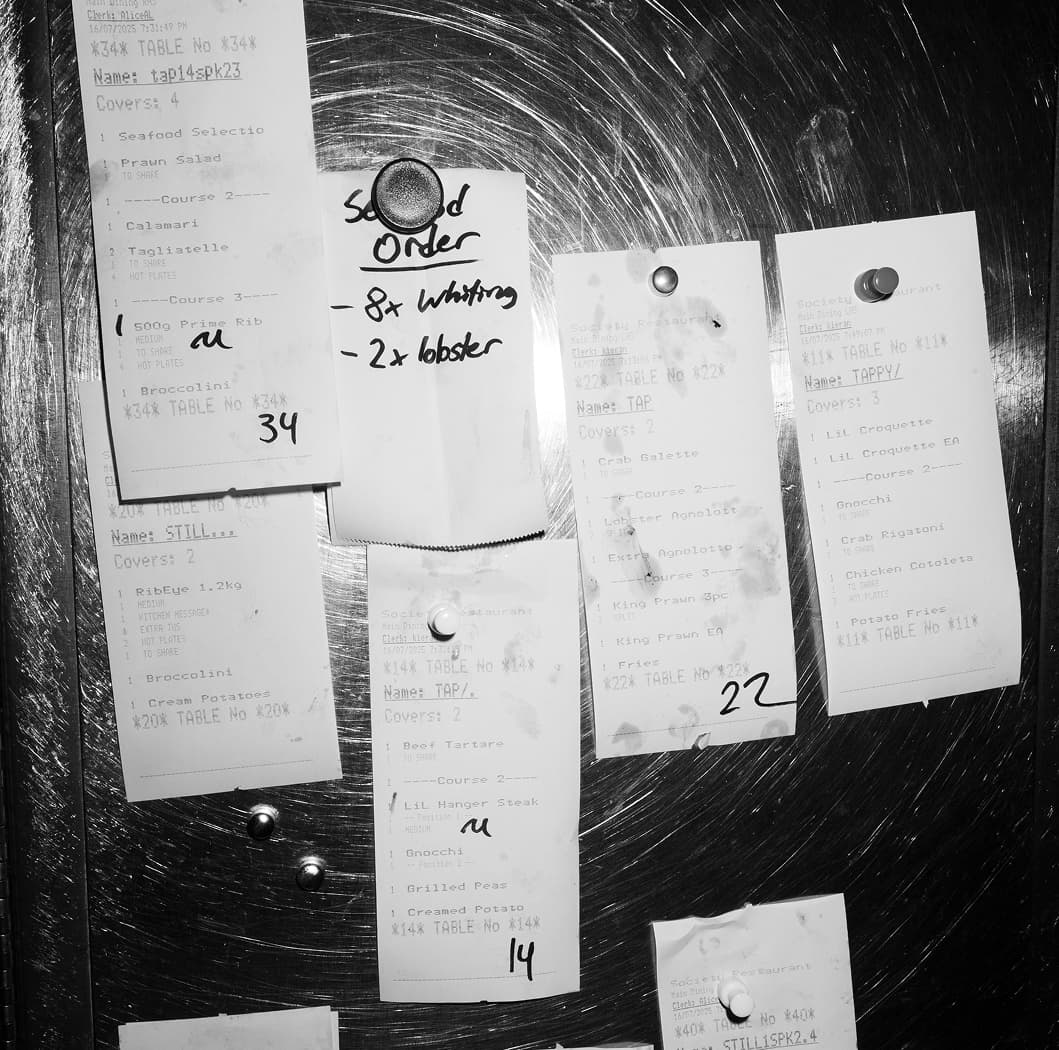 Main Dining
Clerk: AliceAL
16/07/2025 7:31:49 PM
*34* TABLE No *34*
Name: tap14spk23
Covers: 4
1 Seafood Selectio
1 Prawn Salad
TO SHARE
1 ----Course 2----
1 Calamari
2 Tagliatelle
1 TO SHARE
4 HOT PLATES
1 ----Course 3----
1 500g Prime Rib
1 MEDIUM
1 TO SHARE
4 HOT PLATES
M
1 Broccolini
*34* TABLE No *34*
34
*20* TABLE No *20*
Name: STILL...
Covers: 2
1 RibEye 1.2kg
1 MEDIUM
1 KITCHEN MESSAGE
EXTRA JUS
2 HOT PLATES
1 TO SHARE
1 Broccolini
1 Cream Potatoes
*20* TABLE No *20*
Order
- 8x Whiting
- 2x lobster
Society Restaurant
Main Dining
Clerk: kieran
*14* TABLE No *14*
Name: TAP/.
Covers: 2
1 Beef Tartare
TO SHARE
1 ----Course 2----
LiL Hanger Steak
-- Position 1 --
MEDIUM
M
1 Gnocchi
-- Position 2 --
1 Grilled Peas
1 Creamed Potato
*14* TABLE No *14*
14
Society Restaurant
Main Dining
Clerk: kieran
*22* TABLE No *22*
Name: TAP
Covers: 2
1 Crab Galette
TO SHARE
1 ----Course 2----
1 Lobster Agnolott
1 Extra Agnolotto
----Course 3----
1 King Prawn 3pc
1 SPLIT
1 King Prawn EA
1 Fries
*22* TABLE No *22*
22
Society Restaurant
Main Dining
Clerk: kieran
16/07/2025 7:49:07 PM
*11* TABLE No *11*
Name: TAPPY/
Covers: 3
1 LiL Croquette
1 LiL Croquette EA
1 ----Course 2----
1 Gnocchi
TO SHARE
1 Crab Rigatoni
TO SHARE
1 Chicken Cotoleta
TO SHARE
HOT PLATES
1 Potato Fries
*11* TABLE No *11*
Society Restaurant
Main Dining
Clerk: Alice
16/07/2025
*40* TABLE No *40*
Name: STILL1SPK2.4